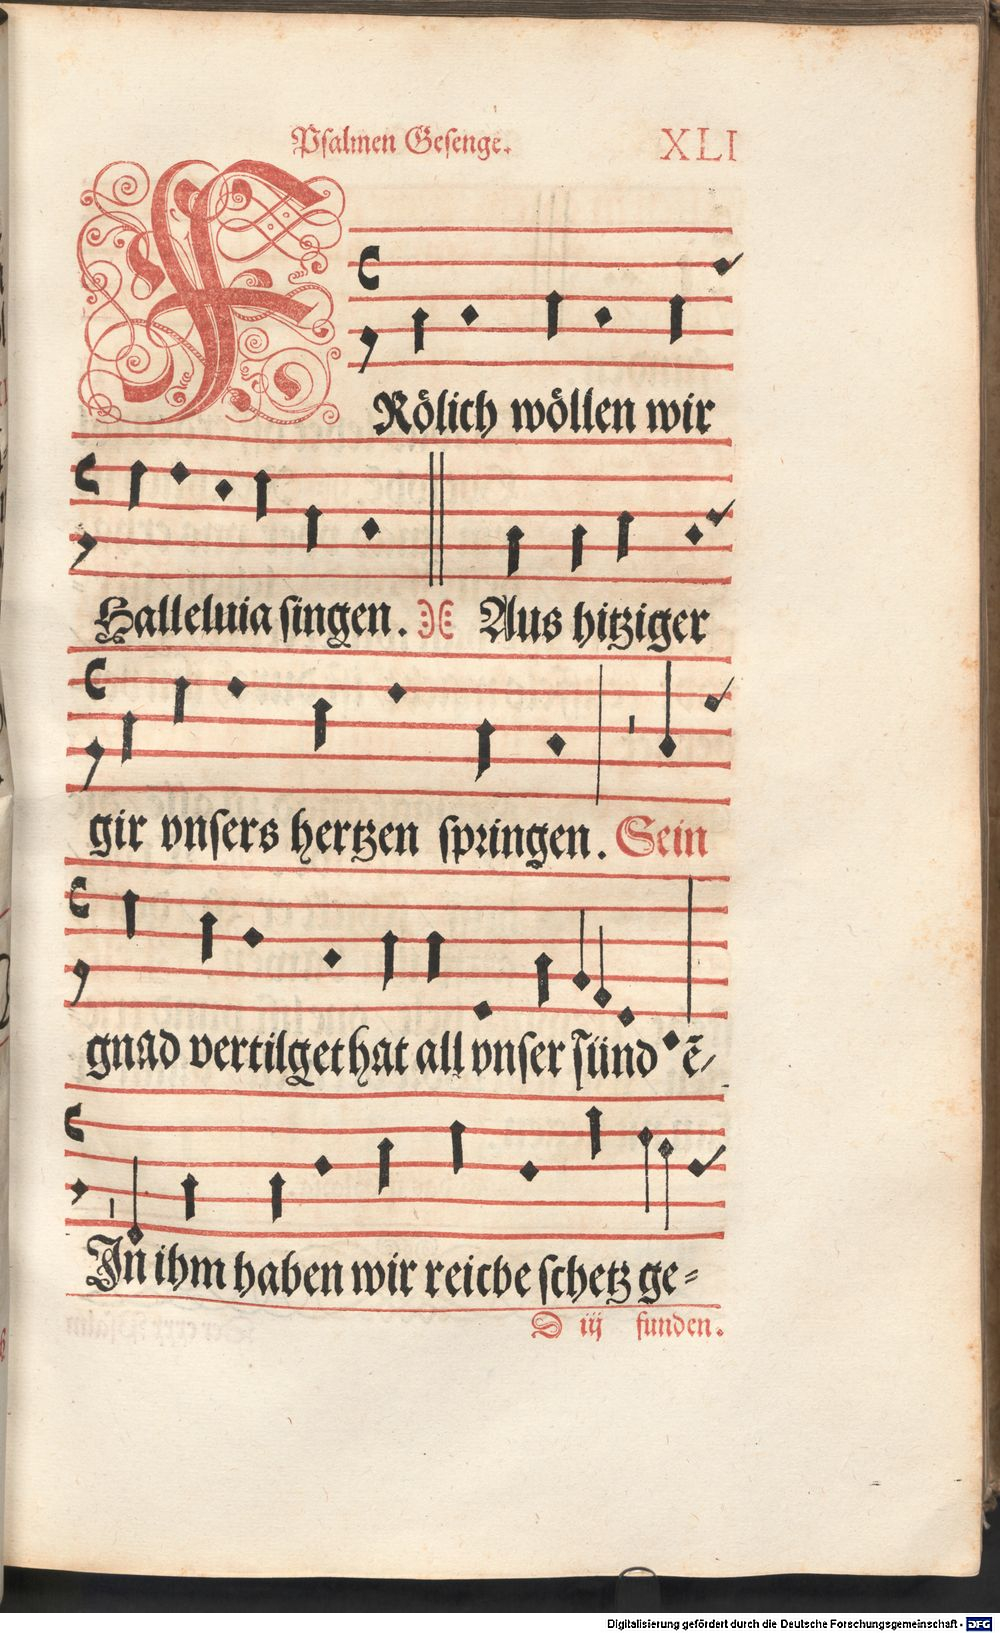 Psalmen Gesenge. XLI
FRölich wöllen wir
Halleluia singen. Aus hitziger
gir vnsers hertzen springen. Sein
gnad vertilget hat all vnser sünd ẽ/
In ihm haben wir reiche schetz ge=
D iij funden.
Digitalisierung gefördert durch die Deutsche Forschungsgemeinschaft - DFG